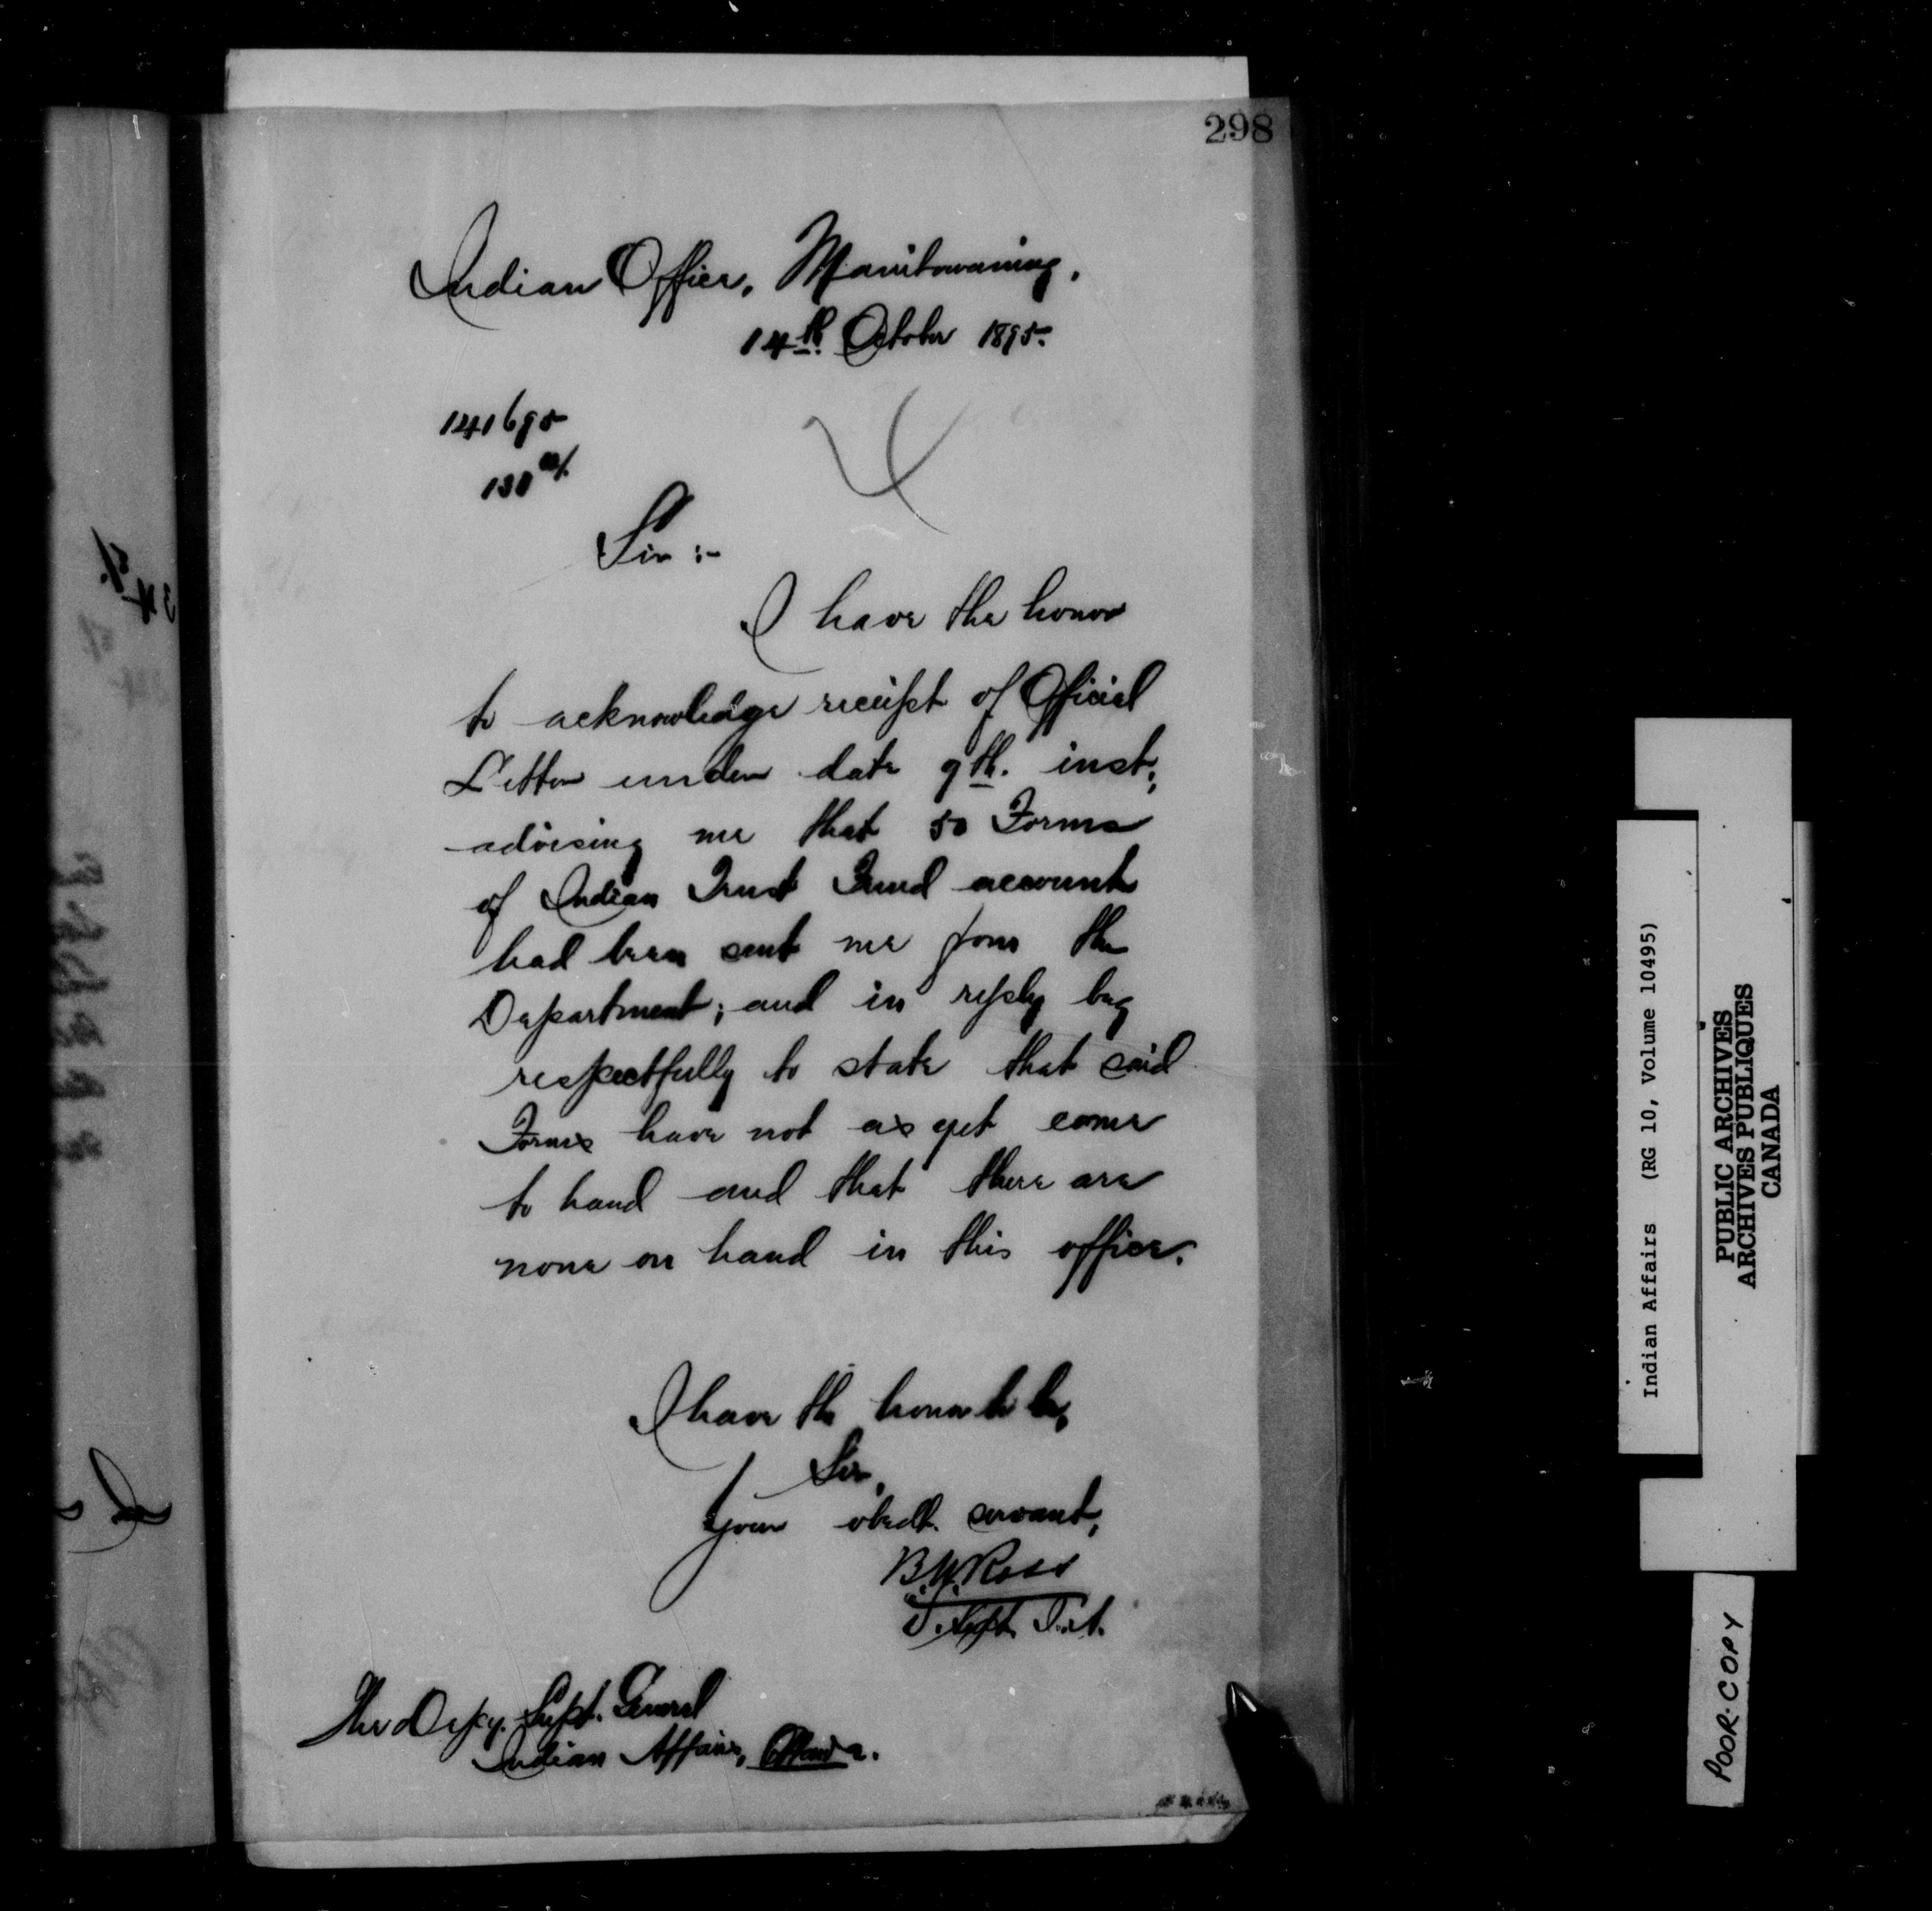 298
Indian Office, Manitowaning,
14th. October 1895.
141695
Sir :-
I have the honor
to acknowledge receipt of Official
Letter under date 9th. inst.,
advising me that 50 Forms
of Indian Trust Fund account
had been sent me from the
Department; and in reply beg
respectfully to state that said
Forms have not as yet come
to hand and that there are
none on hand in this office.
I have the honor to be,
Sir,
Your obedt. servant,
B.W. Ross
The Depy. Supt. General
Indian Affairs, Ottawa.
Indian Affairs (RG 10, Volume 10495)
PUBLIC ARCHIVES
ARCHIVES PUBLIQUES
CANADA
POOR COPY